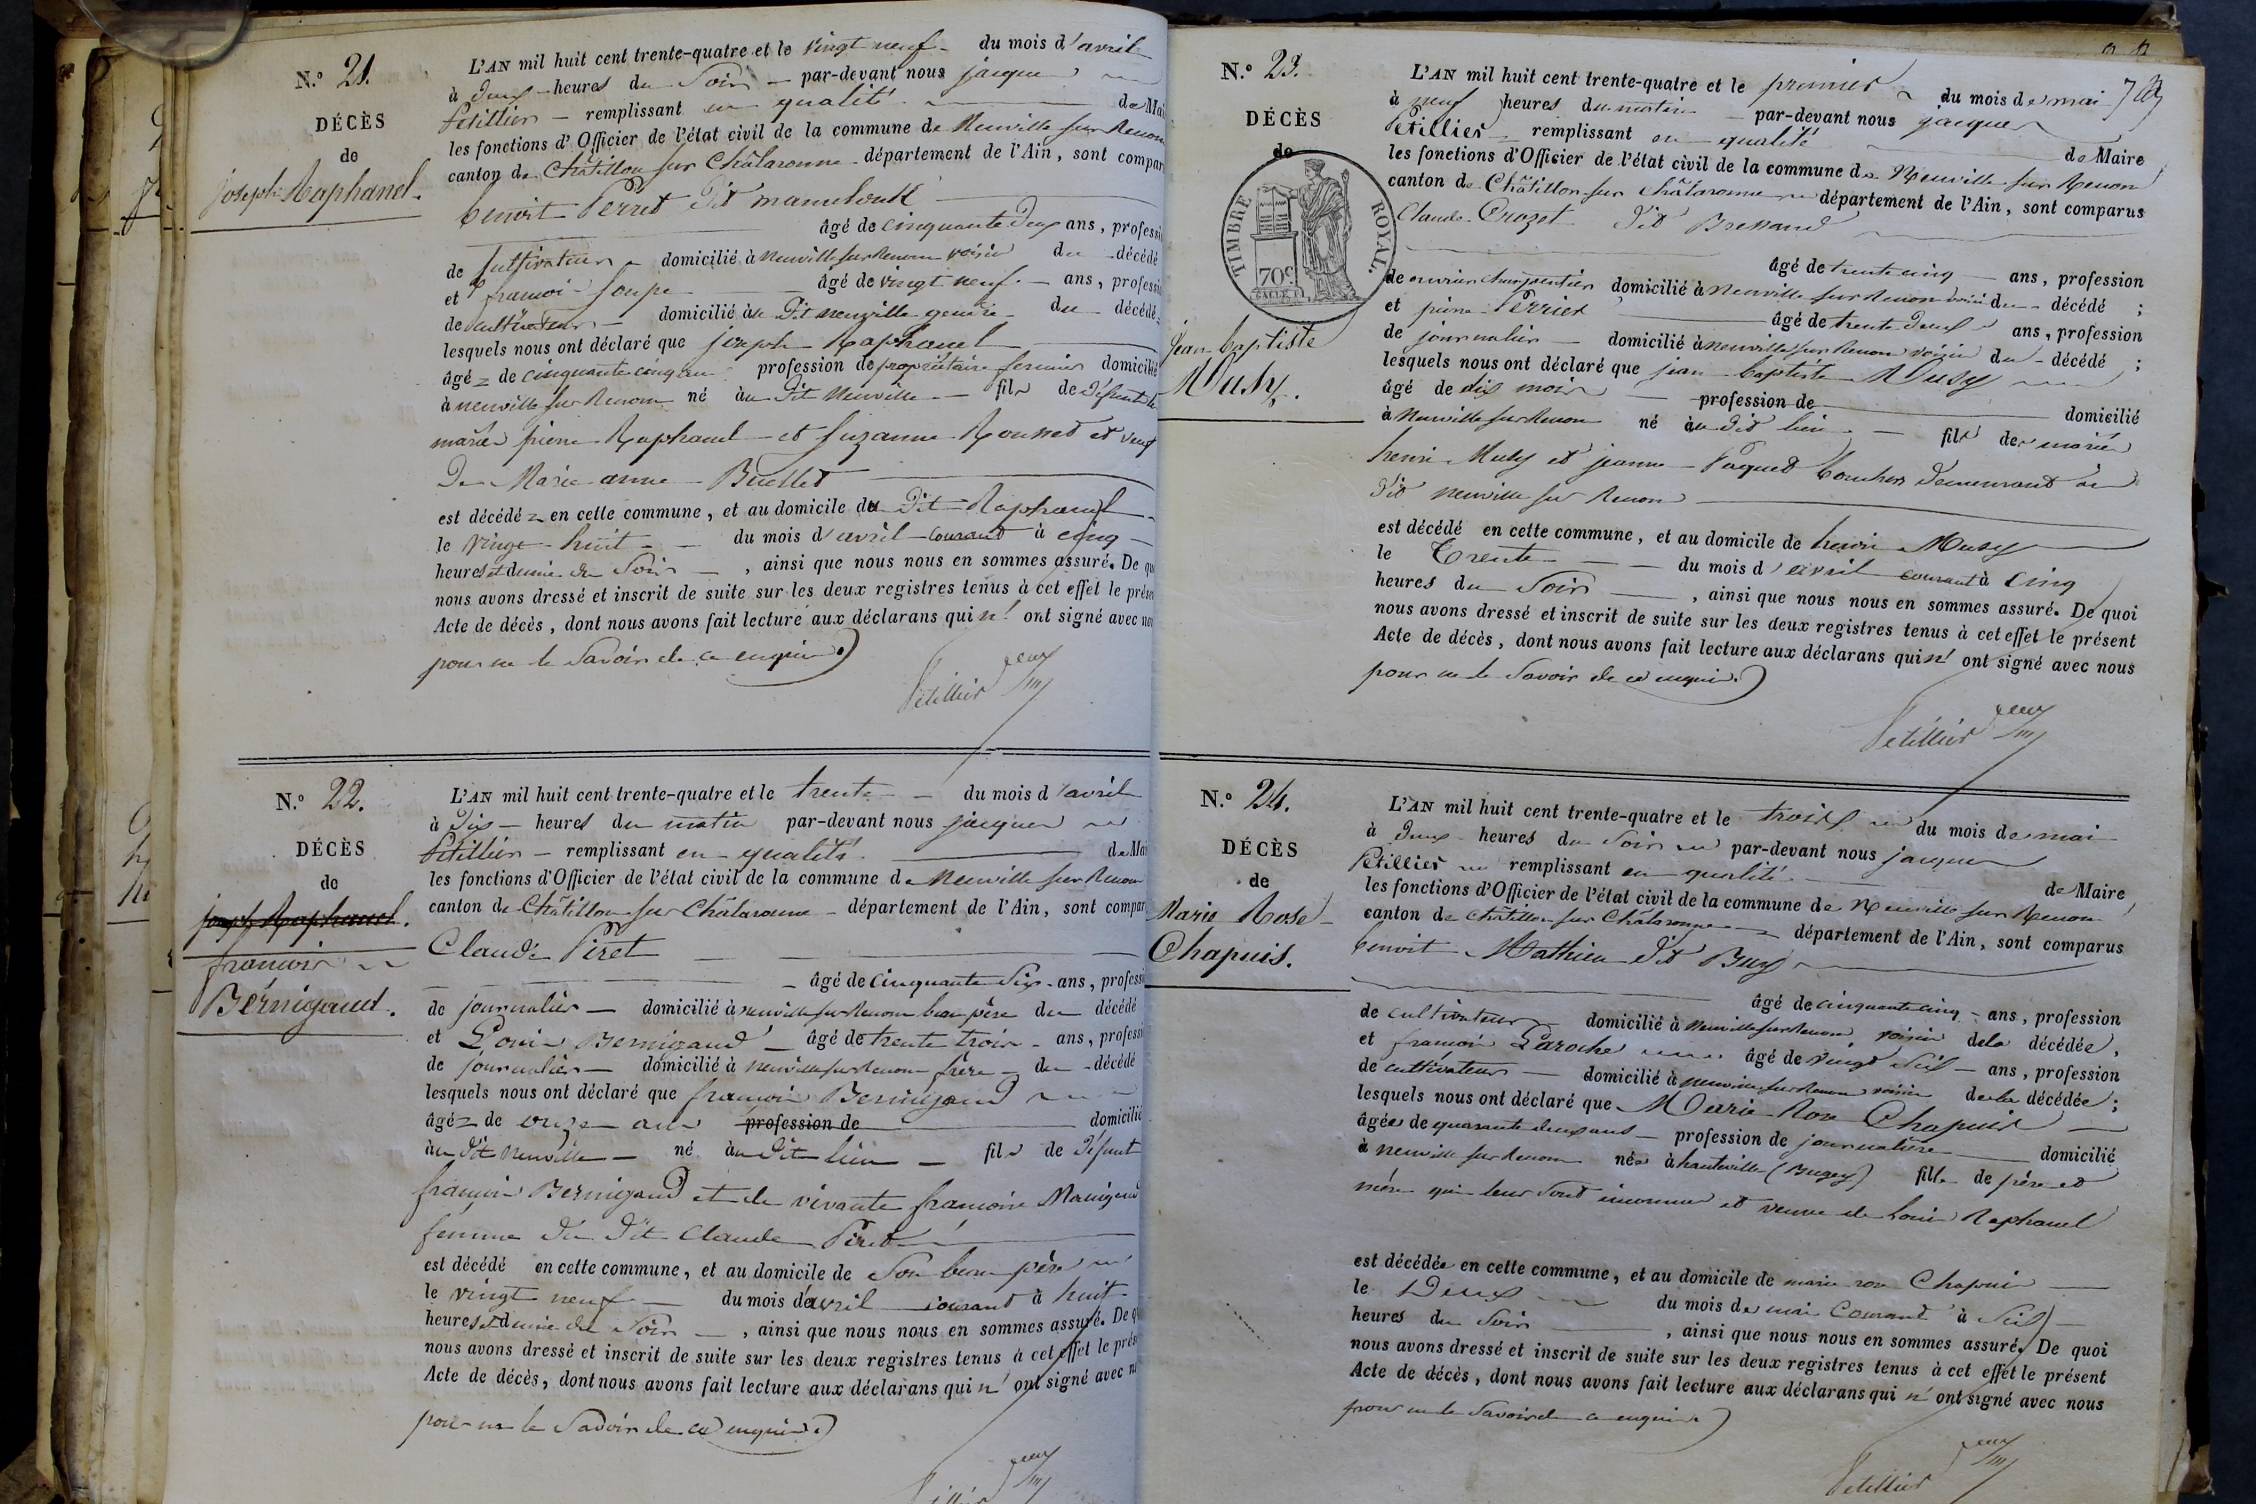 N.º 21.
DÉCÈS
de
joseph Raphanel.
L'AN mil huit cent trente-quatre et le vingt neuf du mois d'avril
à deux heures du Soir par-devant nous jacques
Petillier remplissant en qualité de Mai
les fonctions d'Officier de l'état civil de la commune de Neuville sur Renom
canton de Châtillon sur Châlaronne département de l'Ain, sont compar
benoit Perret dit mamelouk
âgé de cinquante deux ans, professi
de Cultivateur domicilié à neuville sur Renom voisin du décédé
et françois Soupe âgé de vingt neuf ans, professi
de cultivateur domicilié au dit neuville gendre du décédé
lesquels nous ont déclaré que joseph Raphanel
âgé de cinquante cinq ans profession de propriétaire fermier domicilié
à neuville sur Renom né au dit Neuville fils de défunt
mariés pierre Raphanel et Suzanne Rousset et veuf
De Marie anne Buellet
est décédé en cette commune, et au domicile du dit Raphanel
le vingt huit du mois d'avril courant à cinq
heures et demie du Soir, ainsi que nous nous en sommes assuré. De qu
nous avons dressé et inscrit de suite sur les deux registres tenus à cet effet le prése
Acte de décès, dont nous avons fait lecture aux déclarans qui n' ont signé avec no
pour ne le Savoir de ce enquis.
Petillier
N.º 22.
DÉCÈS
de
joseph Raphanel.
françois
Bernigaud.
L'AN mil huit cent trente-quatre et le trente du mois d'avril
à dix heures du matin par-devant nous jacques
Petillier remplissant en qualité de Mai
les fonctions d'Officier de l'état civil de la commune de Neuville sur Renom
canton de Châtillon sur Châlaronne département de l'Ain, sont compar
Claude Piret
âgé de cinquante six ans, professi
de journalier domicilié à neuville sur Renom beau père du décédé
et Louis Bernigaud âgé de trente trois ans, professi
de journalier domicilié à neuville sur Renom frère du décédé
lesquels nous ont déclaré que françois Bernigaud
âgé de onze ans profession de domicilié
au dit Neuville né au dit lieu fils de défunt
françois Bernigaud et de vivante françoise Manigand
femme du dit Claude Piret
est décédé en cette commune, et au domicile de Son beau père
le vingt neuf du mois d'avril courant à huit
heures et demie du Soir, ainsi que nous nous en sommes assuré. De q
nous avons dressé et inscrit de suite sur les deux registres tenus à cet effet le prés
Acte de décès, dont nous avons fait lecture aux déclarans qui n' ont signé avec n
pour ne le Savoir de ce enquis.
N.º 23.
DÉCÈS
de
TIMBRE ROYAL.
70c
jean baptiste
Musy.
L'AN mil huit cent trente-quatre et le premier du mois de mai
à neuf heures du matin par-devant nous jacques
Petillier remplissant en qualité de Maire
les fonctions d'Officier de l'état civil de la commune de Neuville sur Renom
canton de Châtillon sur Châlaronne département de l'Ain, sont comparus
Claude Crozet dit Bressand
âgé de trente cinq ans, profession
de ouvrier charpentier domicilié à neuville sur Renom voisin du décédé ;
et pierre Perrier âgé de trente deux ans, profession
de journalier domicilié à neuville sur Renom voisin du décédé ;
lesquels nous ont déclaré que jean baptiste Musy
âgé de dix mois profession de domicilié
à Neuville sur Renom né au dit lieu fils de mariés
henri Musy et jeanne Paquet bouchers demeurant au
dit neuville sur Renom
est décédé en cette commune, et au domicile de henri Musy
le Trente du mois d'avril courant à cinq
heures du Soir, ainsi que nous nous en sommes assuré. De quoi
nous avons dressé et inscrit de suite sur les deux registres tenus à cet effet le présent
Acte de décès, dont nous avons fait lecture aux déclarans qui n' ont signé avec nous
pour ne le Savoir de ce enquis.
Petillier
N.º 24.
DÉCÈS
de
Marie Rose
Chapuis.
L'AN mil huit cent trente-quatre et le trois du mois de mai
à deux heures du Soir par-devant nous jacques
Petillier remplissant en qualité de Maire
les fonctions d'Officier de l'état civil de la commune de Neuville sur Renom
canton de Châtillon sur Châlaronne département de l'Ain, sont comparus
benoit Mathieu dit Buy
âgé de cinquante cinq ans, profession
de cultivateur domicilié à Neuville sur Renom voisin de la décédée,
et françois Laroche âgé de vingt six ans, profession
de cultivateur domicilié à neuville sur Renom voisin de la décédée ;
lesquels nous ont déclaré que Marie Rose Chapuis
âgée de quarante deux ans profession de journalière domicilié
à neuville sur Renom née à hauteville (Bugey) fille de père et
mère qui leur Sont inconnus et veuve de Louis Raphanel
est décédée en cette commune, et au domicile de marie rose Chapuis
le Deux du mois de mai Courant à Six
heures du Soir, ainsi que nous nous en sommes assuré. De quoi
nous avons dressé et inscrit de suite sur les deux registres tenus à cet effet le présent
Acte de décès, dont nous avons fait lecture aux déclarans qui n' ont signé avec nous
pour ne le Savoir de ce enquis.
Petillier